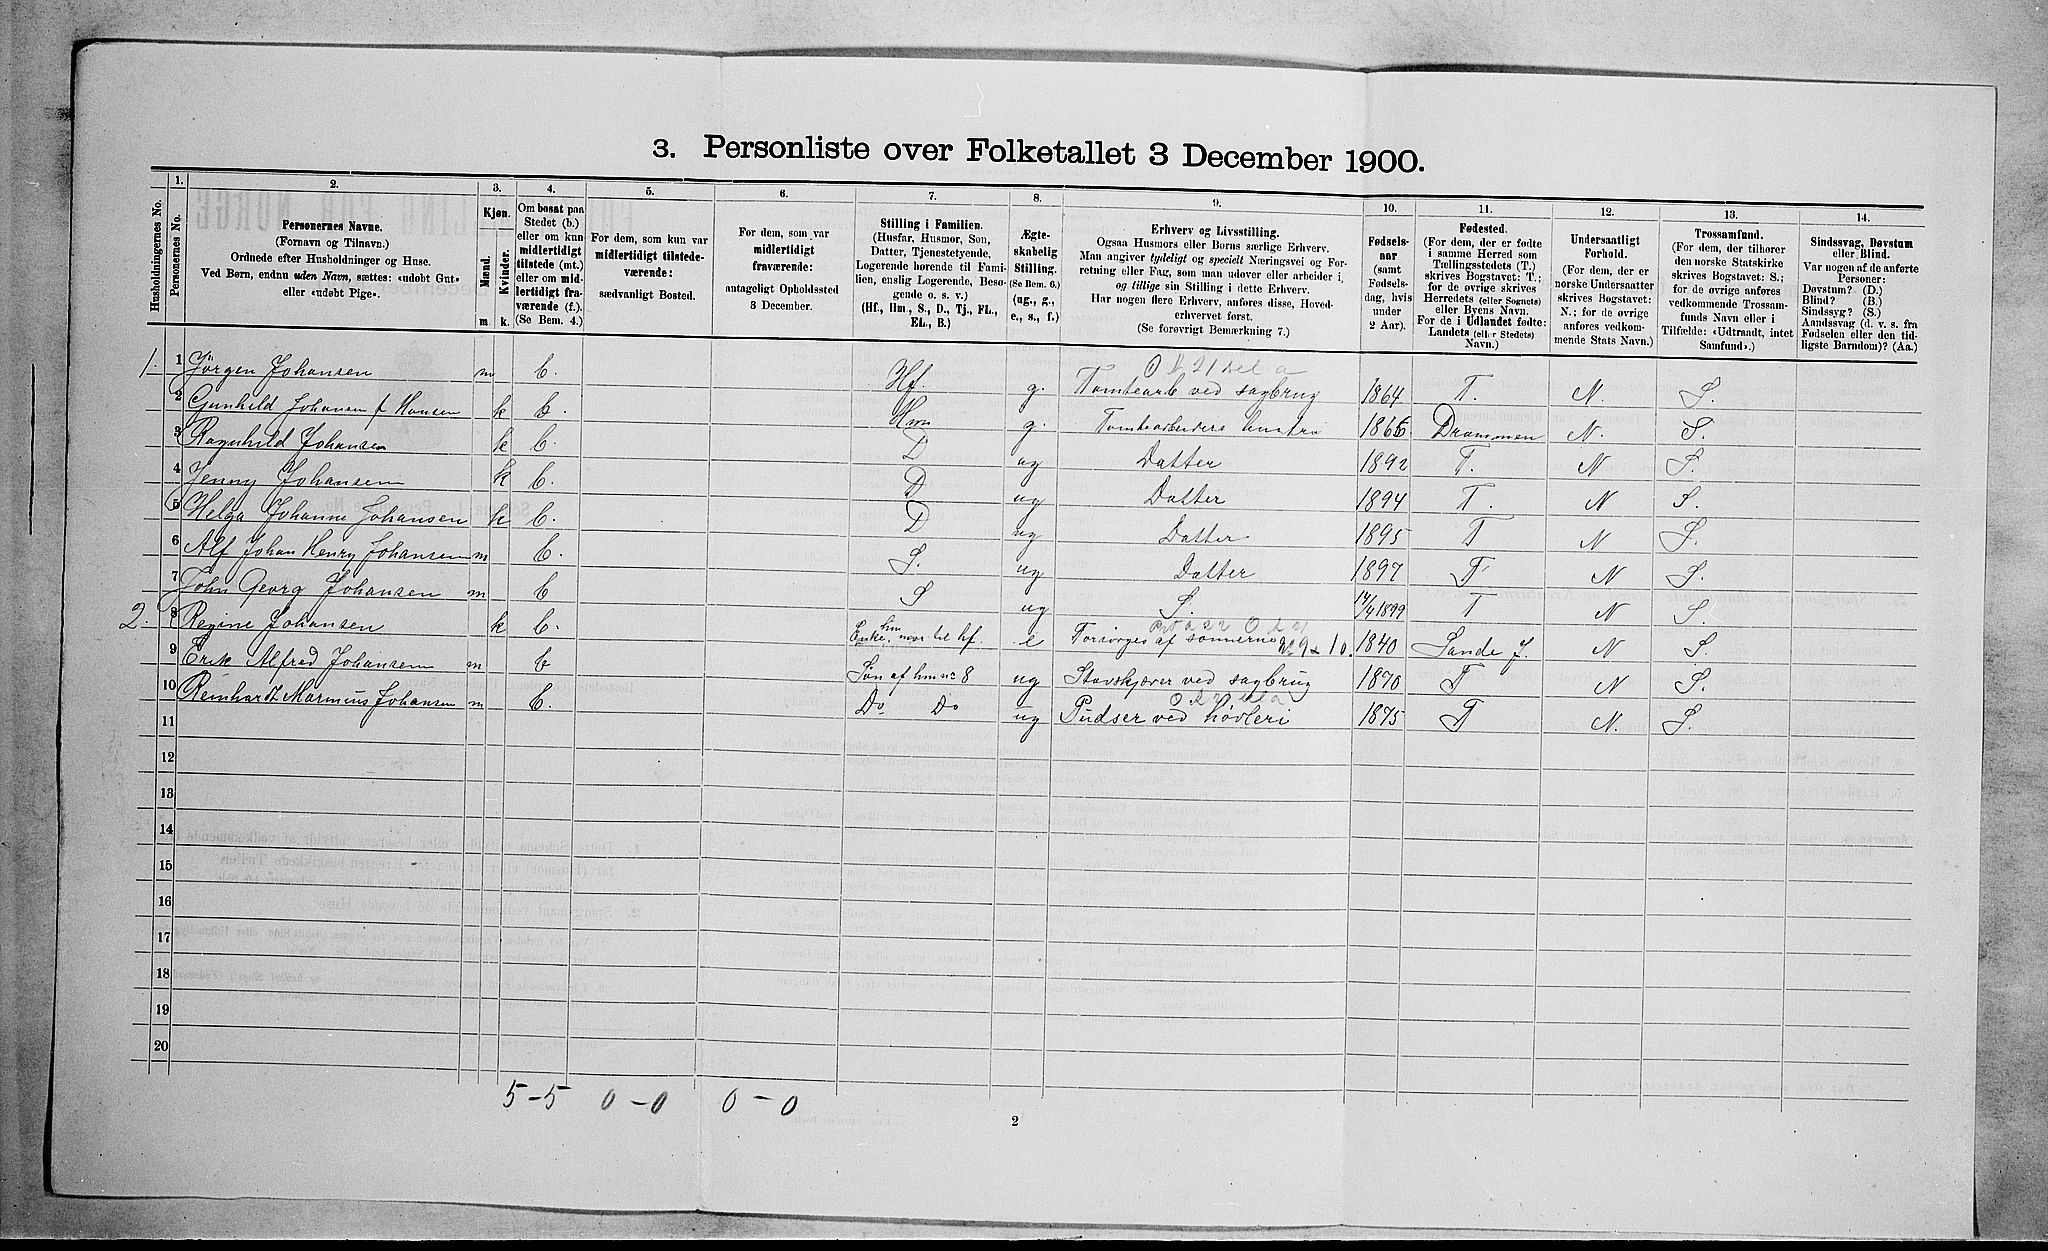 3. Personliste over Folketallet 3 December 1900.
1. 2. 3. 4. 5. 6. 7. 8. 9. 10. 11. 12. 13. 14.
Husholdningernes No.
Personernes No.
Personernes Navne.
(Fornavn og Tilnavn.)
Ordnede efter Husholdninger og Huse.
Ved Børn, endnu uden Navn, sættes: «udøbt Gut»
eller «udøbt Pige».
Kjøn.
Mænd.
Kvinder.
m k.
Om bosat paa
Stedet (b.)
eller om kun
midlertidigt
tilstede (mt.)
eller om mid-
lertidigt fra-
værende (f.).
(Se Bem. 4.)
For dem, som kun var
midlertidigt tilstede-
værende:
sædvanligt Bosted.
For dem, som var
midlertidigt
fraværende:
antageligt Opholdssted
3 December.
Stilling i Familien.
(Husfar, Husmor, Søn,
Datter, Tjenestetyende,
Logerende hørende til Fami-
lien, enslig Logerende, Besø-
gende o. s. v.)
(Hf., Hm., S., D., Tj., FL.,
EL., B.)
Ægte-
skabelig
Stilling.
(Se Bem. 6.)
(ug., g.,
e., s., f.)
Erhverv og Livsstilling.
Ogsaa Husmors eller Børns særlige Erhverv.
Man angiver tydeligt og specielt Næringsvei og For-
retning eller Fag, som man udøver eller arbeider i,
og tillige sin Stilling i dette Erhverv.
Har nogen flere Erhverv, anføres disse, Hoved-
erhvervet først.
(Se forøvrigt Bemærkning 7.)
Fødsels-
aar
(samt
Fødsels-
dag, hvis
under
2 Aar).
Fødested.
(For dem, der er fødte
i samme Herred som
Tællingsstedets (T.)
skrives Bogstavet: T.;
for de øvrige skrives
Herredets (eller Sognets)
eller Byens Navn.
For de i Udlandet fødte:
Landets (eller Stedets)
Navn.)
Undersaatligt
Forhold.
(For dem, der er
norske Undersaatter
skrives Bogstavet:
N.; for de øvrige
anføres vedkom-
mende Stats Navn.)
Trossamfund.
(For dem, der tilhører
den norske Statskirke
skrives Bogstavet: S.;
for de øvrige anføres
vedkommende Trossam-
funds Navn eller i
Tilfælde: «Udtraadt, intet
Samfund».)
Sindssvag, Døvstum
eller Blind.
Var nogen af de anførte
Personer:
Døvstum? (D.)
Blind? (B.)
Sindssyg? (S.)
Aandssvag (d. v. s. fra
Fødselen eller den tid-
ligste Barndom)? (Aa.)
1. 1 Jörgen Johansen m b. Hf. g. Tomtearb ved sagbrug 1864 T. N. S.
2 Gunhild Johansen f Hansen k b. Hm g. Tomtearbeiders hustru 1865 Drammen N. S.
3 Ragnhild Johansen k b. D ug Datter 1892 T. N S.
4 Jenny Johansen k b. D ug Datter 1894 T. N S.
5 Helga Johanne Johansen k b. D ug Datter 1895 T N S.
6 Alf Johan Henry Johansen m b. S. ug Datter 1897 T N S.
7 John Georg Johansen m b S ug S. 14/4 1899 T N S.
2. 8 Regine Johansen k b. Enke, hm mor til hf. e Forsørges af sønnerne No 9 + 10. 1840 Sande J. N S.
9 Erik Alfred Johansen m b Søn af hm no 8 ug Stavskjærer ved sagbrug 1870 T N S.
10 Reinhardt Marinius Johansen m b. Do Do ug Pudser ved høvleri 1875 T N. S.
11
12
13
14
15
16
17
18
19
20
5-5 0-0 0-0
2